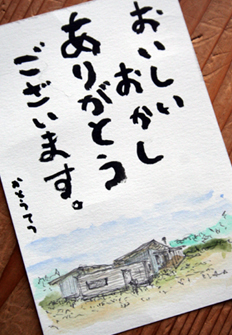 おいしい
おかし
ありがとう
ございます。
かとうてつ